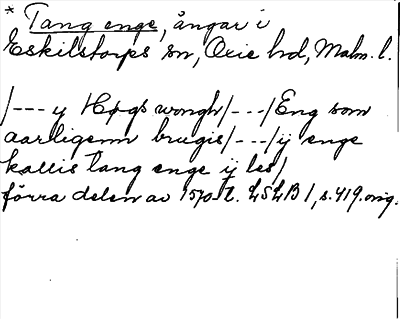 * Tang enge, ängar i
Eskilstorps sn, Oxie hd, Malm. l.
/--- y Høgs wongh/---/Eng som
aarligenn brugis/---/ij enge
kallis Tang enge ij les/
förra delen av 1570-t. LSLB 1, s. 419. orig.